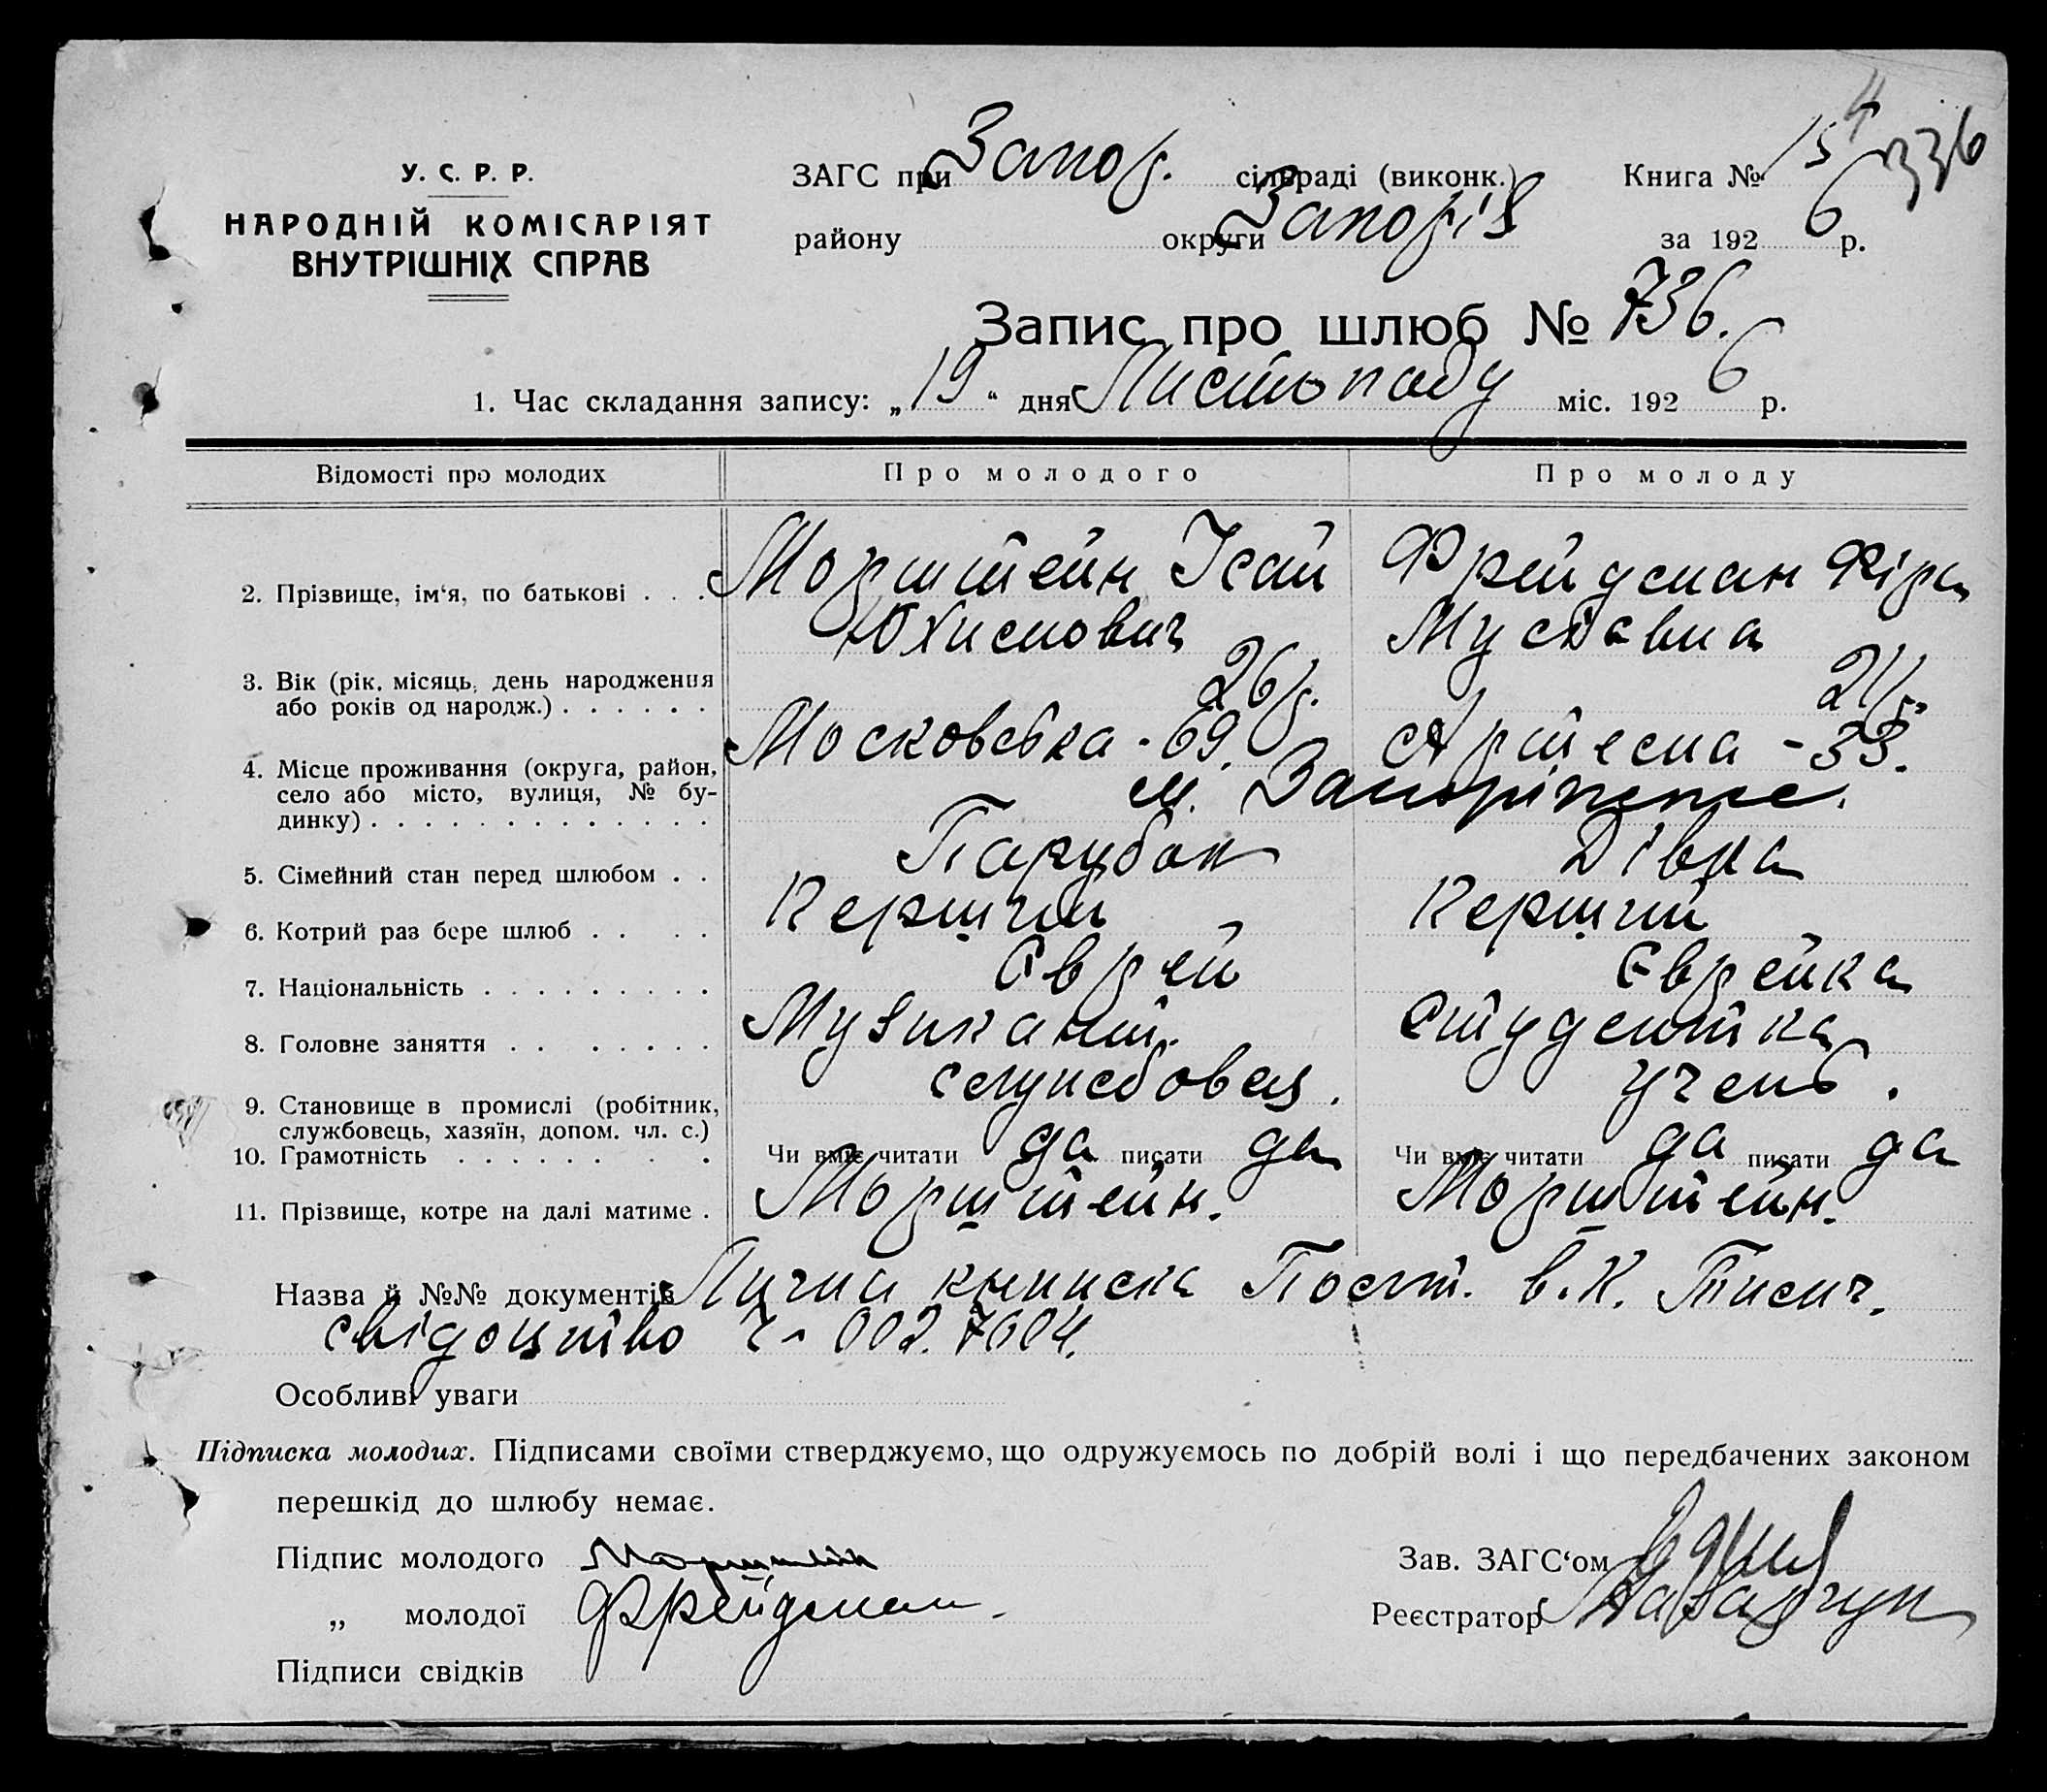 У. С. Р. Р.
НАРОДНІЙ КОМІСАРІЯТ
ВНУТРІШНІХ СПРАВ
ЗАГС при Запор. сільраді (виконк.) Книга № 15 4 336
району округи Запоріз за 192 6 р.
Запис про шлюб № 736.
1. Час складання запису: „ 19 “ дня Листопаду міс. 192 6 р.
Відомості про молодих Про молодого Про молоду
2. Прізвище, ім‘я, по батькові . . . Морштейн Ісай Фрейдман Фіра
Юхимович
3. Вік (рік, місяць, день народження 26 р. 21 р.
або років од народж.) . . . . . .
4. Місце проживання (округа, район, Московська - 69. Артема - 33.
село або місто, вулиця, № бу- м. Запоріжжє.
динку) . . . . . . . . . . . . .
5. Сімейний стан перед шлюбом . . Парубок Дівка
6. Котрий раз бере шлюб . . . . Перший Перший
7. Національність . . . . . . . . . Єврей Єврейка
8. Головне заняття . . . . . . . . Музикант. Студентка
9. Становище в промислі (робітник, службовец. учень.
службовець, хазяїн, допом. чл. с.)
10. Грамотність . . . . . . . . Чи вміє читати да писати да Чи вміє читати да писати да
11. Прізвище, котре на далі матиме . Морштейн. Морштейн.
Назва й №№ документів Лична книжка Посвт. в.К.
свідоцтво ч- 002. 7604.
Особливі уваги
Підписка молодих. Підписами своїми стверджуємо, що одружуємось по добрій волі і що передбачених законом
перешкід до шлюбу немає.
Підпис молодого Морштейн Зав. ЗАГС‘ом
„ молодої Фрейдман. Реєстратор
Підписи свідків